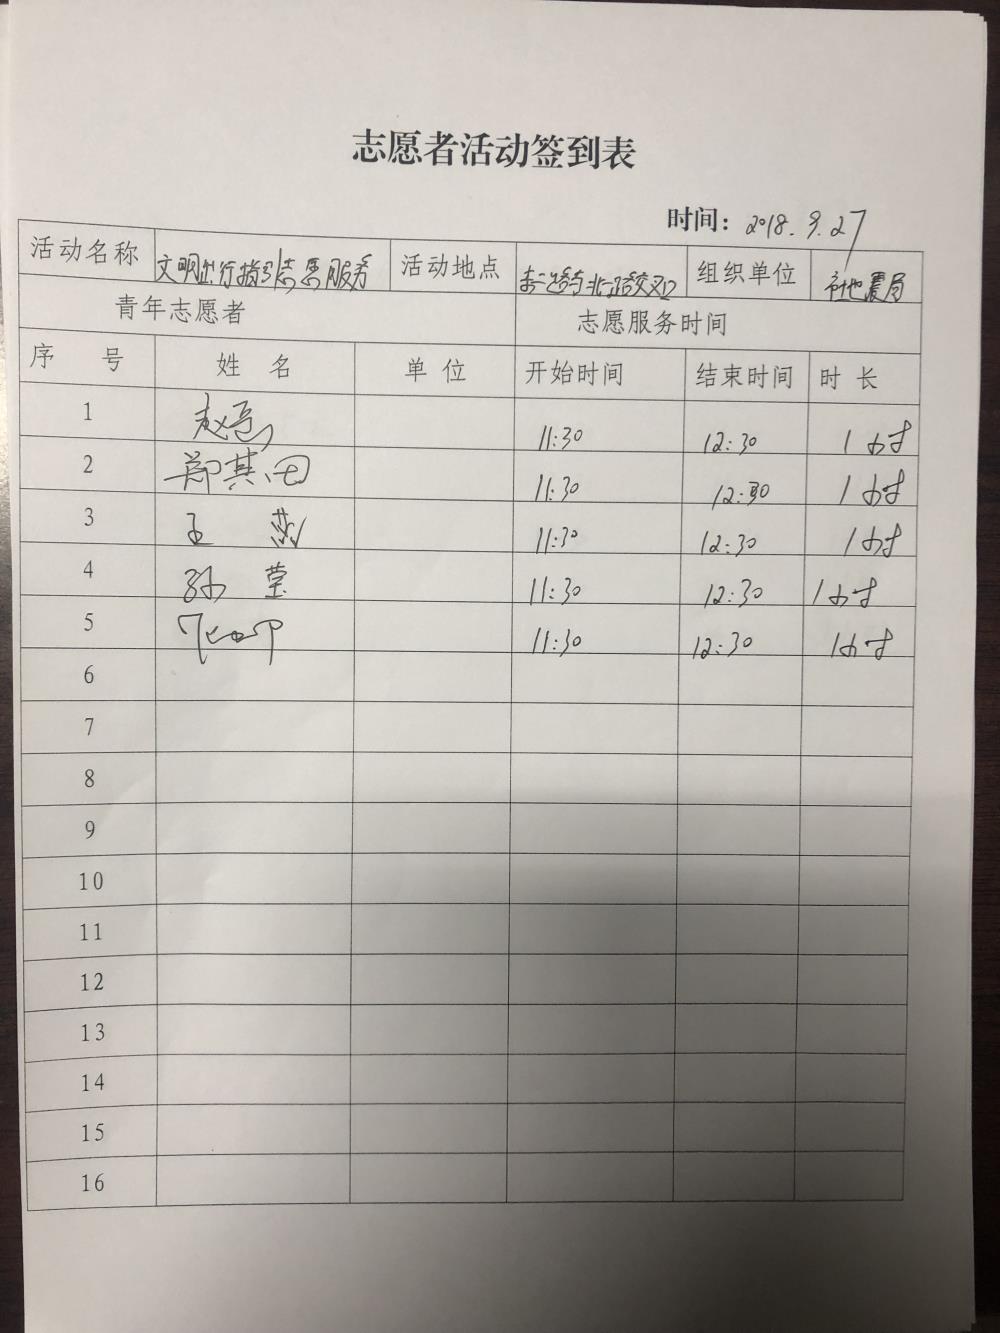 志愿者活动签到表
时间：2018.9.27
活动名称 文明出行指引志愿服务 活动地点 组织单位 市地震局
青年志愿者 志愿服务时间
序 号 姓 名 单 位 开始时间 结束时间 时 长
1 11:30 12:30 1小时
2 郑其田 11:30 12:30 1小时
3 王 11:30 12:30 1小时
4 孙 莹 11:30 12:30 1小时
5 11:30 12:30 1小时
6
7
8
9
10
11
12
13
14
15
16